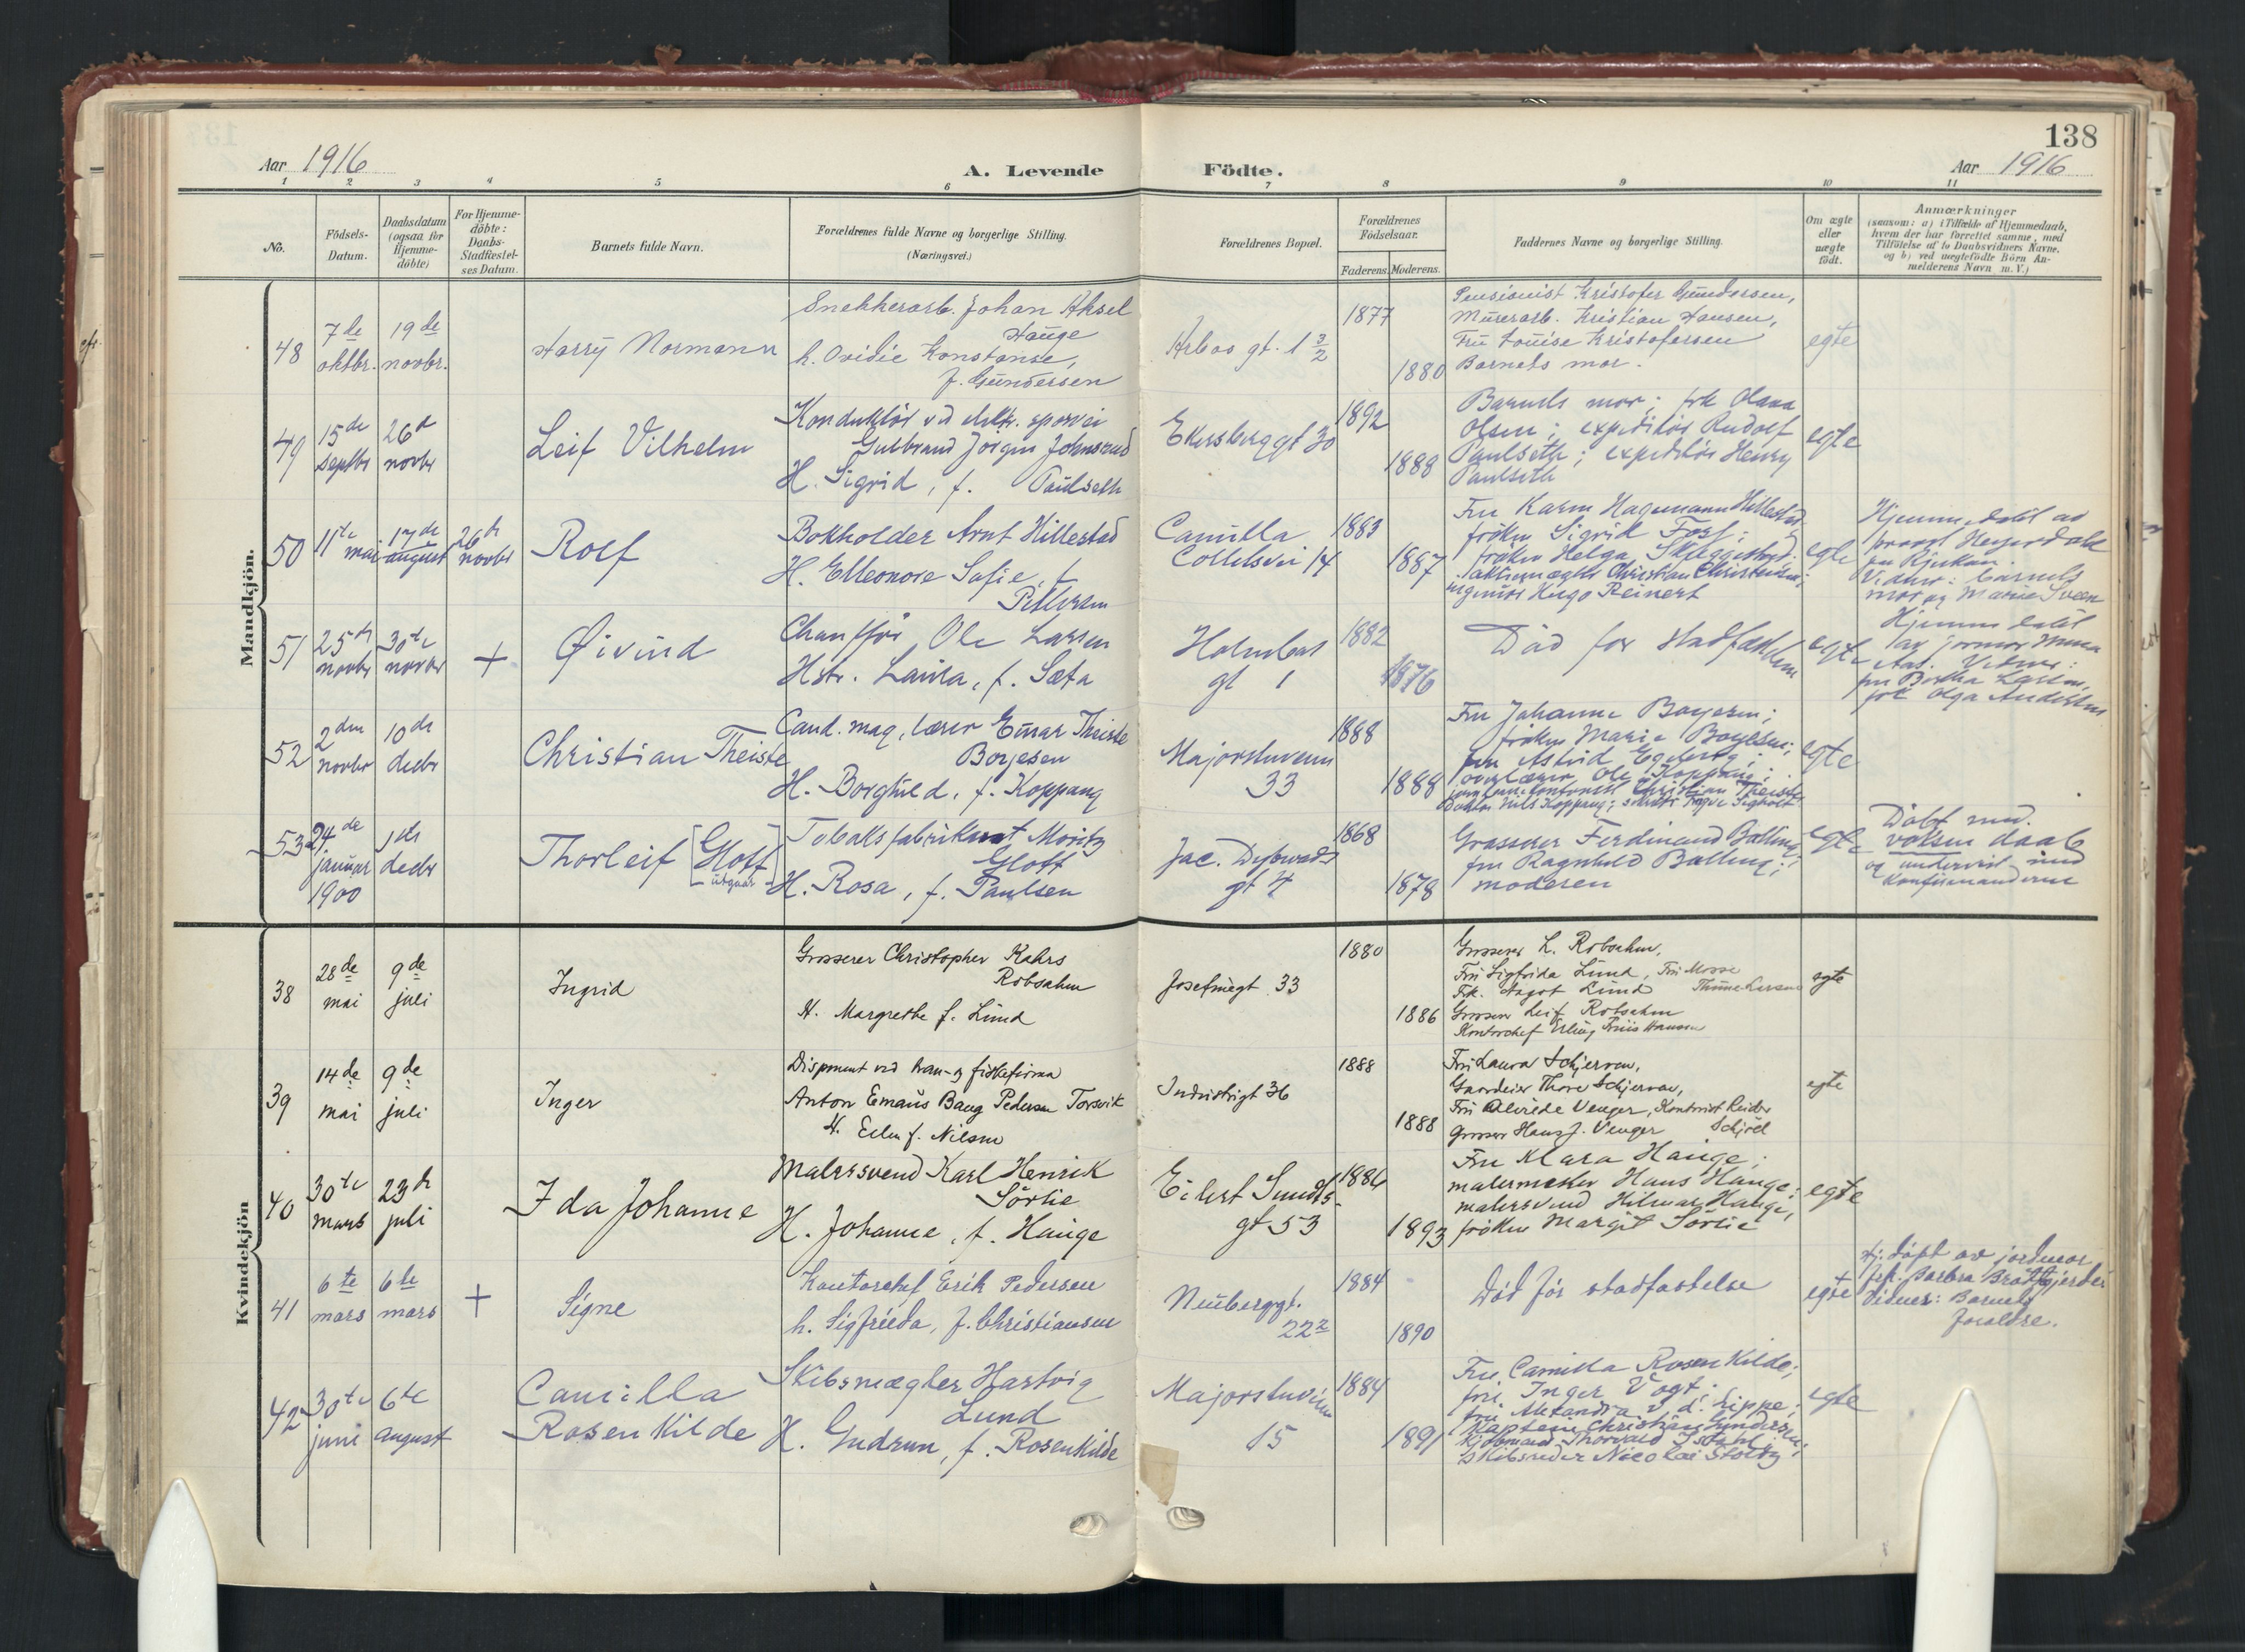 138
Aar 1916
A. Levende Födte.
Aar 1916
1 2 3 4 5 6 7 8 9 10 11
No.
Födsels-
Datum.
Daabsdatum
(ogsaa for
Hjemme-
döbte)
For Hjemme-
döbte:
Daabs-
Stadfæstel-
ses Datum.
Barnets fulde Navn.
Forældrenes fulde Navne og borgerlige Stilling.
(Næringsvei.)
Forældrenes Bopæl.
Forældrenes
Födselsaar.
Faderens. Moderens.
Faddernes Navne og borgerlige Stilling.
Om ægte
eller
uægte
födt.
Anmærkninger
(saasom: a) i Tilfælde af Hjemmedaab,
hvem der har forrettet samme, med
Tilföielse af to Daabsvidners Navne.
og b) ved uægtefödte Börn An-
melderens Navn m. V.)
Mandkjön.
48
7de
oktbr.
19de
novbr.
Harry Normann
Snekkerarb. Johan Aksel
Hauge
h. Ovidie Konstanse,
f. Gundersen
Arbos gt. 1 3/2
1877
1880
Pensionist Kristofer Gundersen,
Murerarb. Kristian Hansen,
Fru Louise Kristofersen
Barnets mor.
egte
49
15de
septbr
26de
novbr
Leif Vilhelm
Konduktör vd elektr. sporvei
Gulbrand Jörgen Johnsrud
H. Sigrid, f. Paulseth
Ekersberggt 30
1892
1888
Barnets mor; frk Olava
Olsen; expeditör Rudolf
Paulseth; expeditör Henry
Paulseth
egte
50
11te
mai
17de
august
26de
novbr
Rolf
Bokholder Arnt Hillestad
H. Elleonore Sofie, f.
Pettersen
Camilla
Colletsvei 14
1883
1887
Fru Karen Hagemann Hillestad
fröken Sigrid Foss;
fröken Helga Skeggestad.
Christian Christensen;
ingeniör Hugo Reinert
egte
Hjemmedöbt av
prost Heyerdahl
paa Rjukan.
Vidner: barnets
mor og Marie Sveen
51
25de
novbr
30te
novbr
+
Øivind
Chaufför Ole Larsen
Hstr. Laura, f. Sæta
Holmboes
gt 1
1882
1876
Död för stadfæstelsen
egte
Hjemmedöbt
av jormor
Vidner:
fru Bertha Larsen,
frk Olga Andersen
52
2den
novbr
10de
decbr
Christian Theiste
Cand. mag, lærer Einar Theiste
Borjesen
H. Borghild, f. Koppang
Majorstuveien
33
1888
1888
Fru Johanne Boyesen;
fröken Marie Boyesen;
fru Astrid Egeberg;
overlærer Ole Koppang;
Christian Theiste
Doktor Nils Koppang;
egte
53
24de
januar
1900
1ste
decbr
Thorleif [Glott]
utgaar
Tobaksfabrikant Moritz
Glott
H. Rosa, f. Paulsen
Jac. Dybwads
gt 4
1868
1878
Grosserer Ferdinand Bælling;
fru Ragnhild Bælling;
moderen
egte
Döbt med
voksen daab
og undervist med
konfirmanderne
Kvindekjön
38
28de
mai
9de
juli
Ingrid
Grosserer Christopher Kahrs
Robsahm
H. Margrethe f. Lund
Josefinegt 33
1880
1886
Grosserer L. Robsahm,
Fru Sigfrida Lund, Fru Mosse
Frk. Aagot Lund Thune-Larsen
Grosserer Leif Robsahm
Kontorchef Erling Friis Hansen
egte
39
14de
mai
9de
juli
Inger
Disponent ved tran- og fiskefirma
Anton Emaus Bang Pedersen Torsvik
H. Ellen f. Nilsen
Industrigt 36
1888
1888
Fru Laura Schjervan,
Gaardeier Thore Schjervan,
Fru Alvilde Venger, Kontorist Reidar
Grosserer Hans J. Venger Schjöll
egte
40
30te
mars
23de
juli
Ida Johanne
Malersvend Karl Henrik
Sörlie
H. Johanne, f. Hauge
Eilert Sundts
gt 53
1886
1893
Fru Klara Hauge;
malermester Hans Hauge;
malersvend Hilmar Hauge,
fröken Margit Sörlie
egte
41
6te
mars
6te
mars
+
Signe
Kontorchef Erik Pedersen
h. Sigfrida, f. Christiansen
Neuberggt.
22 2
1884
1890
Död för stadfæstelse
+
egte
Hj. döpt av jordmor
frk. Barbra Brattgjerdei
Vidner: Barnets
foræelse.
42
30te
juni
6te
august
Camilla
Rosenkilde
Skibsmægler Hartvig
Lund
H. Gudrun, f. Rosenkilde
Majorstuveien
15
1884
1891
Fru Camilla Rosenkilde;
fru Inger Vogt;
fru Alexandra v. d. Lippe;
Kaptein Christian Gundersen;
Kjöbmand Thorvald
Skibsreder Nicolai Stolby
egte